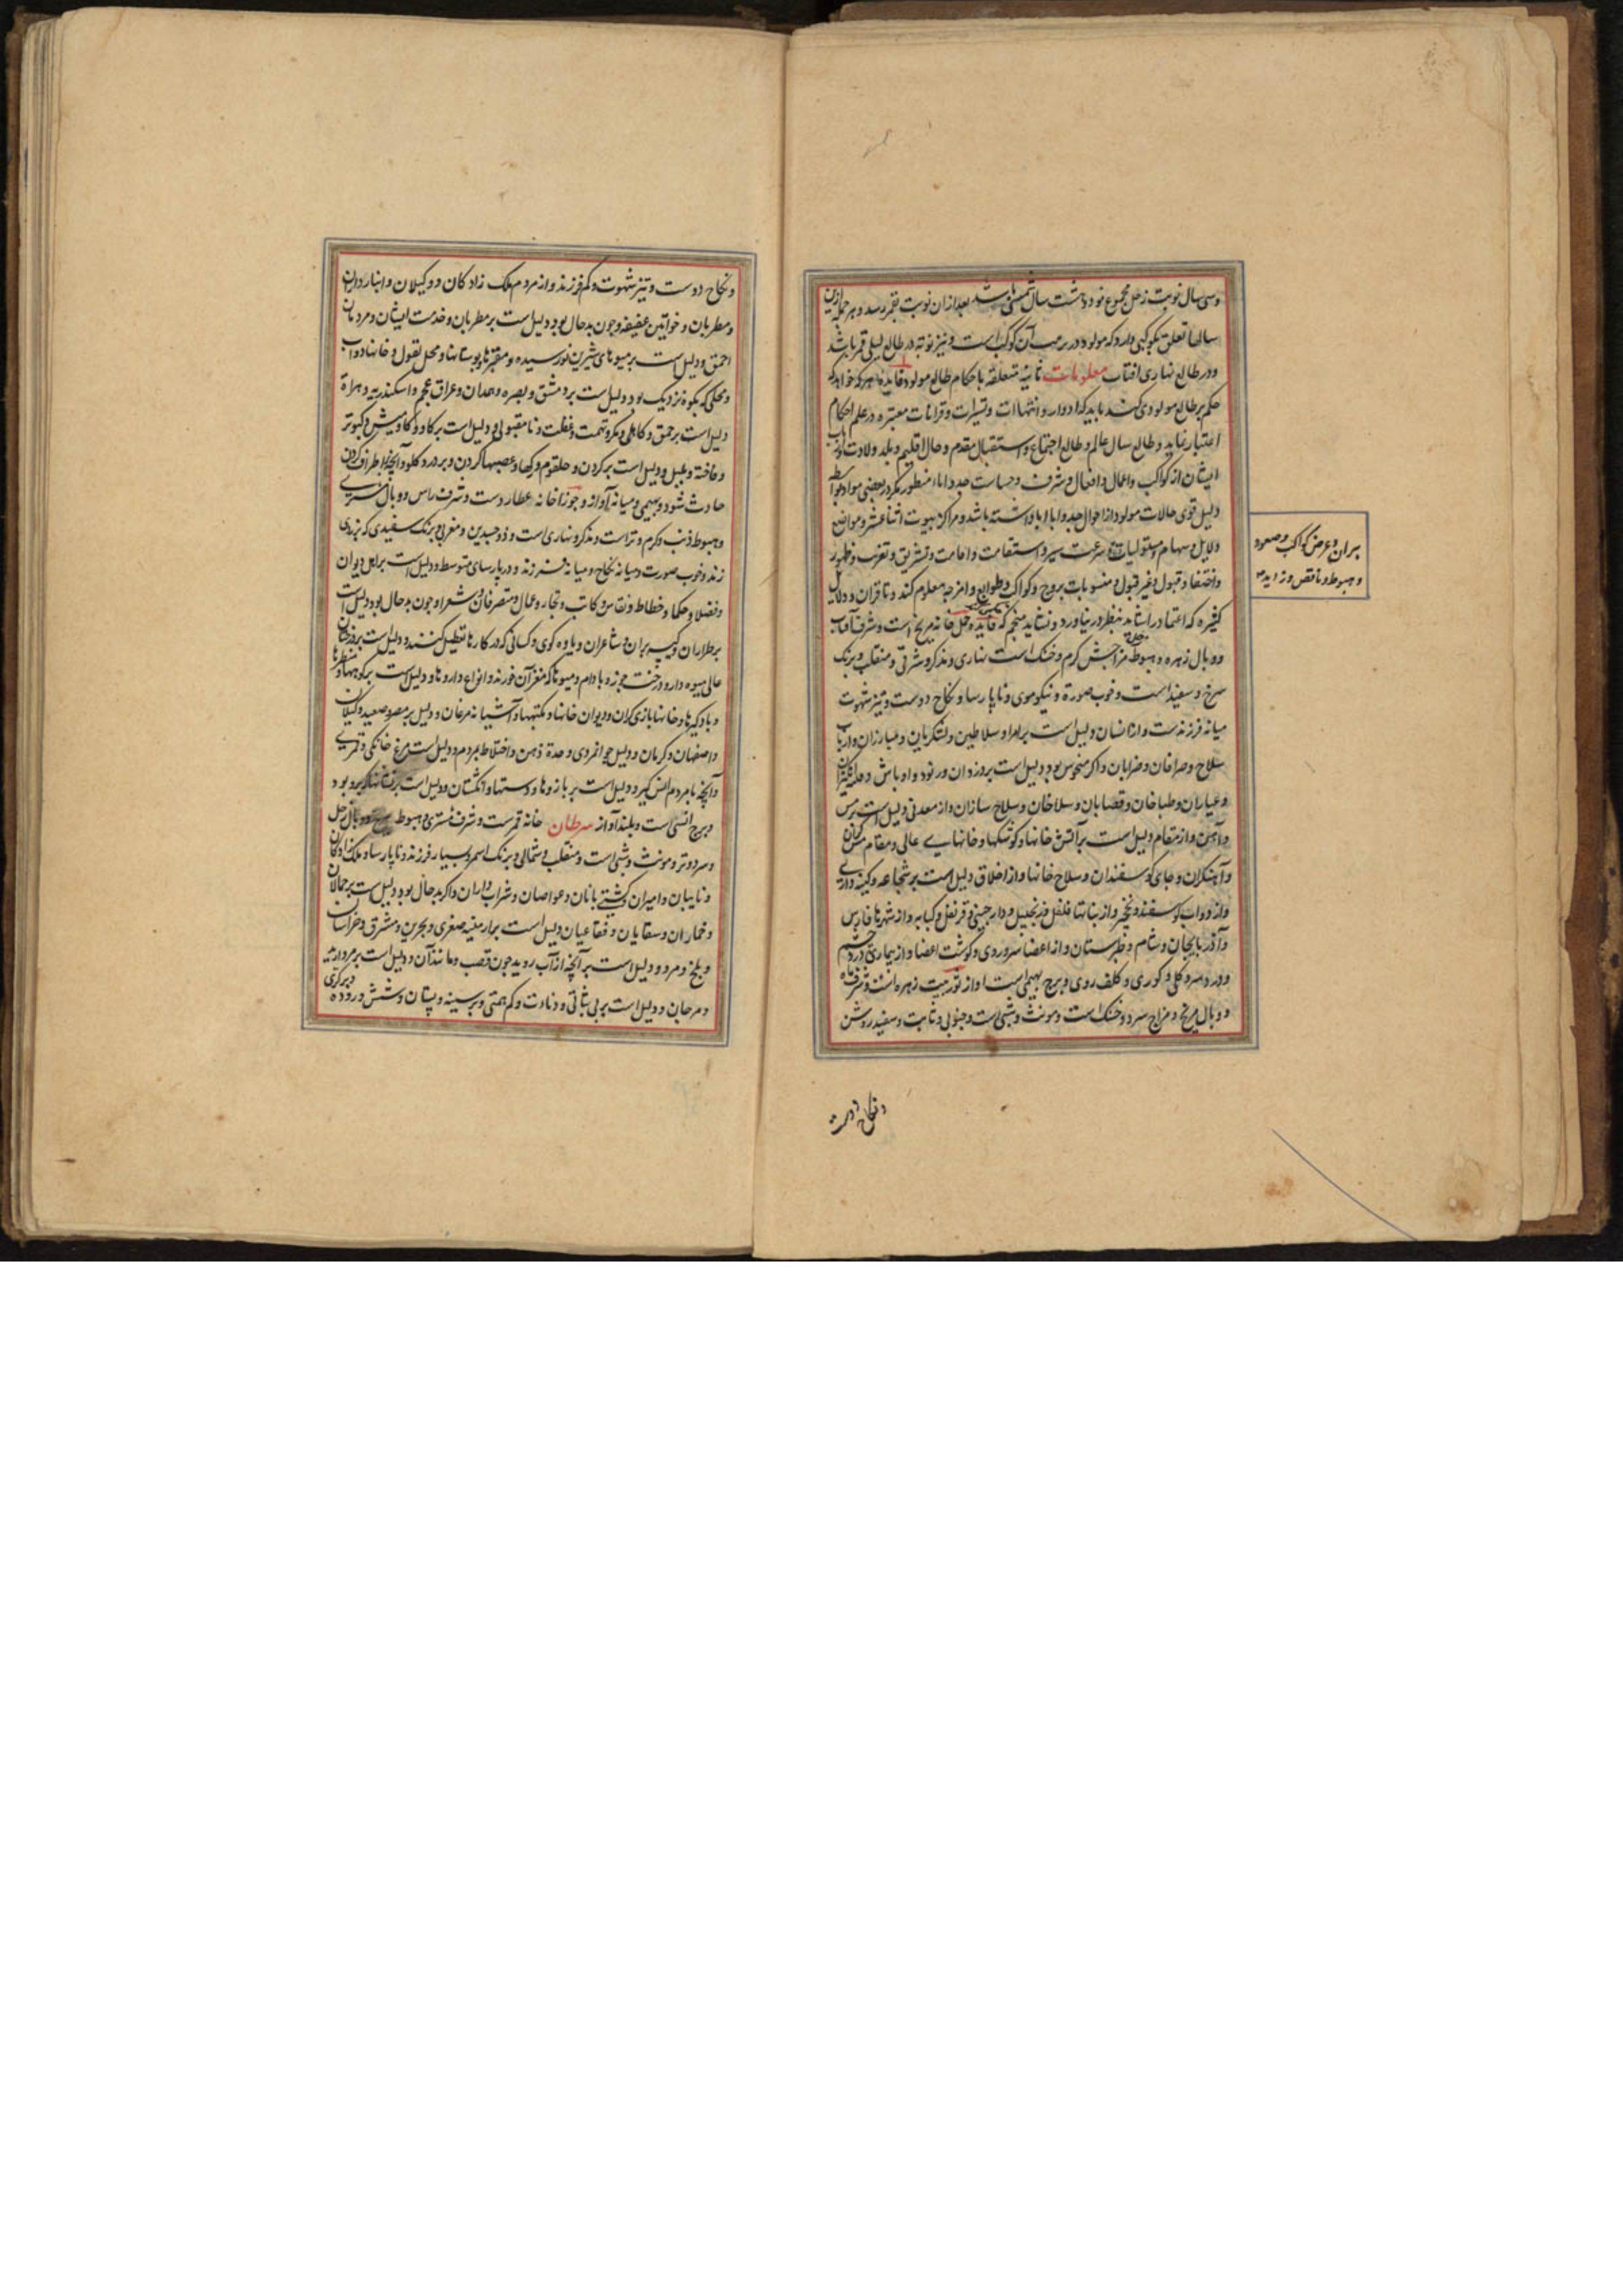 وسی سال نوبت زحل مجموع نود و هشت سال شمسی باشد بعد از ان نوبت بقمر رسد و هر جمله ازین
سالها تعلق بکوکبی دارد که مولود در تربیت آن کوکب است و نیز نوبه در طالع لیلی قمر باشد
و در طالع نهاری افتاب معلومات ثانیه متعلقه باحکام طالع مولود فایده هر که خواهد که
حکم بر طالع مولودی کند باید که ادوار و انتهاات و تسیرات و قرانات معتبره در علم احکام
اعتبار نماید و طالع سال عالم و طالع اجتماع و استقبال مقدم و حال اقلیم و بلد ولادت
ایشان از کواکب و اعمال و افعال و شرف و خساست جد و ابا منظور نکرد در بعضی مواد
دلیل قوی حالات مولود از احوال جد و ابا داشته باشد و مراکز بیوت اثنا عشر و مواضع
دلایل و سهام و مستولیات و سرعت سیر و استقامت و اقامت و تشریق و تغرب و ظهور
واختفا و قبول و غیر قبول و منسوبات بروج و کواکب و طوالع و امزجه معلوم کند و تا قران و دلایل
کثیره که اعتماد را شاید بنظر در نیاورد و نشاید منجم که فایده حمل خانه مریخ است و شرف آفتاب
و وبال زهره و هبوط زحل مزاجش کرم و خشک است نهاری و مذکر و شرقی و منقلب و برنک
سرخ و سفید است و خوب صورة و نیکو موی و ناپارسا و نکاح دوست و تیز شهوت
میانه فرزندست و از انسان دلیل است بر امرا و سلاطین و لشکریان و مبارزان و ارباب
سلاح و صرافان و ضرابان و اکر منحوس بود دلیل است بر دزدان و رنود و اوباش
و عیاران و طباخان و قصابان و سلاخان و سلاح سازان و از معدنی دلیل است بر مس
و آهن و از مقام دلیل است بر آتش خانها و کوشکها و خانهای عالی و مقام
و آهنکران و جای کوسفندان و سلاح خانها و از اخلاق دلیل است بر شجاعه و کینه داری
و از دواب کوسفند و نخچیر و از نباتها فلفل و زنجبیل و دار چینی و قرنفل و کبابه و از شهرها فارس
و آذربایجان و شام و طبرستان و از اعضا سر و روی و کوشت اعضا و از بیماری درد چشم
و درد سر و کلی و کوری و کلف روی و برج بهیمی است و آواز ثور بیت زهره است و شرف ماه
و وبال مریخ و مزاج سرد و خشک است و مونث و شبی است و جنوبی و ثابت و سفید روشن
بیران و عرض کواکب و صعود
و هبوط و ناقص و زاید
و نکاح دوست
و نکاح دوست و تیز شهوت و کم فرزند و از مردم ملک زادکان و وکیلان و انبار داران
و مطربان و خواتین عفیفه و چون بد حال بود دلیل است بر مطربان و خدمت ایشان و مردمان
احمق و دلیل است بر میوهای شیرین نورسیده و منتزها و بوستانها و محل بقول و خانها دواب
و محلی که بکوه نزدیک بود و دلیل است بر دمشق و بصره و همدان و عراق عجم و اسکندریه و هراة
دلیل است بر حمق و کاهلی و مکر و تهمت و غفلت و نا مقبولی و دلیل است بر کاو و کاومیش و کبوتر
و فاخته و بلبل و دلیل است بر کردن و حلقوم و رکها و عصبها کردن و بر درد کلو و آنچه بر اطراف کردن
حادث شود و بهیمی و میانه آواز و جوزا خانه عطاردست و شرف راس و وبال مشتری
و هبوط ذنب و کرم و ترست و مذکر و نهاری است و ذو جسدین و مغربی برنک سفیدی که بزردی
زند و خوب صورت و میانه نکاح و میانه فرزند و در پارسای متوسط و دلیل است بر اهل دیوان
و فضلا و حکما و خطاط و نقاش و کاتب و تجار و عمال و متصرفان و شعرا و چون بد حال بود دلیل است
بر طراران و کیسه بران و شاعران و یاوه کوی و کسانی که در کارها تعطیل کنند و دلیل است بر درختان
عالی میوه دار و درخت جوز و بادام و میوها که مغز آن خورند و انواع داروها و دلیل است بر کوهها و
و بادکیرها و خانها بازی کران و دیوان خانها و مکتبها و آشیانه مرغان و دلیل بر مصر و صعید و کیلان
و اصفهان و کرمان و دلیل جوانمردی و حدة ذهن و اختلاط بمردم و دلیل است بر مرغ خانکی و قمری
و آنچه با مردم انس کیرد و دلیل است بر بازوها و دستها و انکشتان و دلیل است بر
و برج انسی است و بلند آواز سرطان خانه قمرست و شرف مشتری و هبوط مریخ و وبال زحل
و سرد و تر و مونث و شبی است و منقلب و شمالی و برنک اسمر و بسیار فرزند و ناپارسا و ملک زادکان
و نایبان و امیران و کشتی بانان و غواصان و شراب داران و اکر بد حال بود دلیل است بر حمالان
و خماران و سقایان و فقاعیان دلیل است بر ارمنیه صغری و بحرین و مشرق و خراسان
و بلخ و مرو و دلیل است بر آنچه از آب روید چون قصب و مانند آن و دلیل است بر مروارید
و مرجان و دلیل است بر بی ثباتی و دنائت و کم همتی و بر سینه و پستان و شش و روده